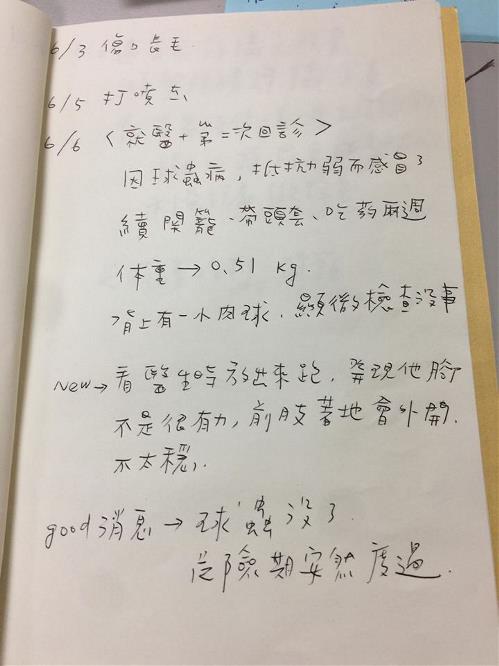 6/3 傷口長毛
6/5 打噴嚏
6/6 <就醫+第二次回診>
因球蟲病,抵抗力弱而感冒了
續關籠、帶頭套、吃药兩週
体重→0.51 kg.
背上有一小肉球.顯微檢查沒事
New→看醫生時放出來跑.發現他腳
不是很有力,前肢著地會外開.
不太穩.
good消息→球蟲沒了
危險期安然度過.